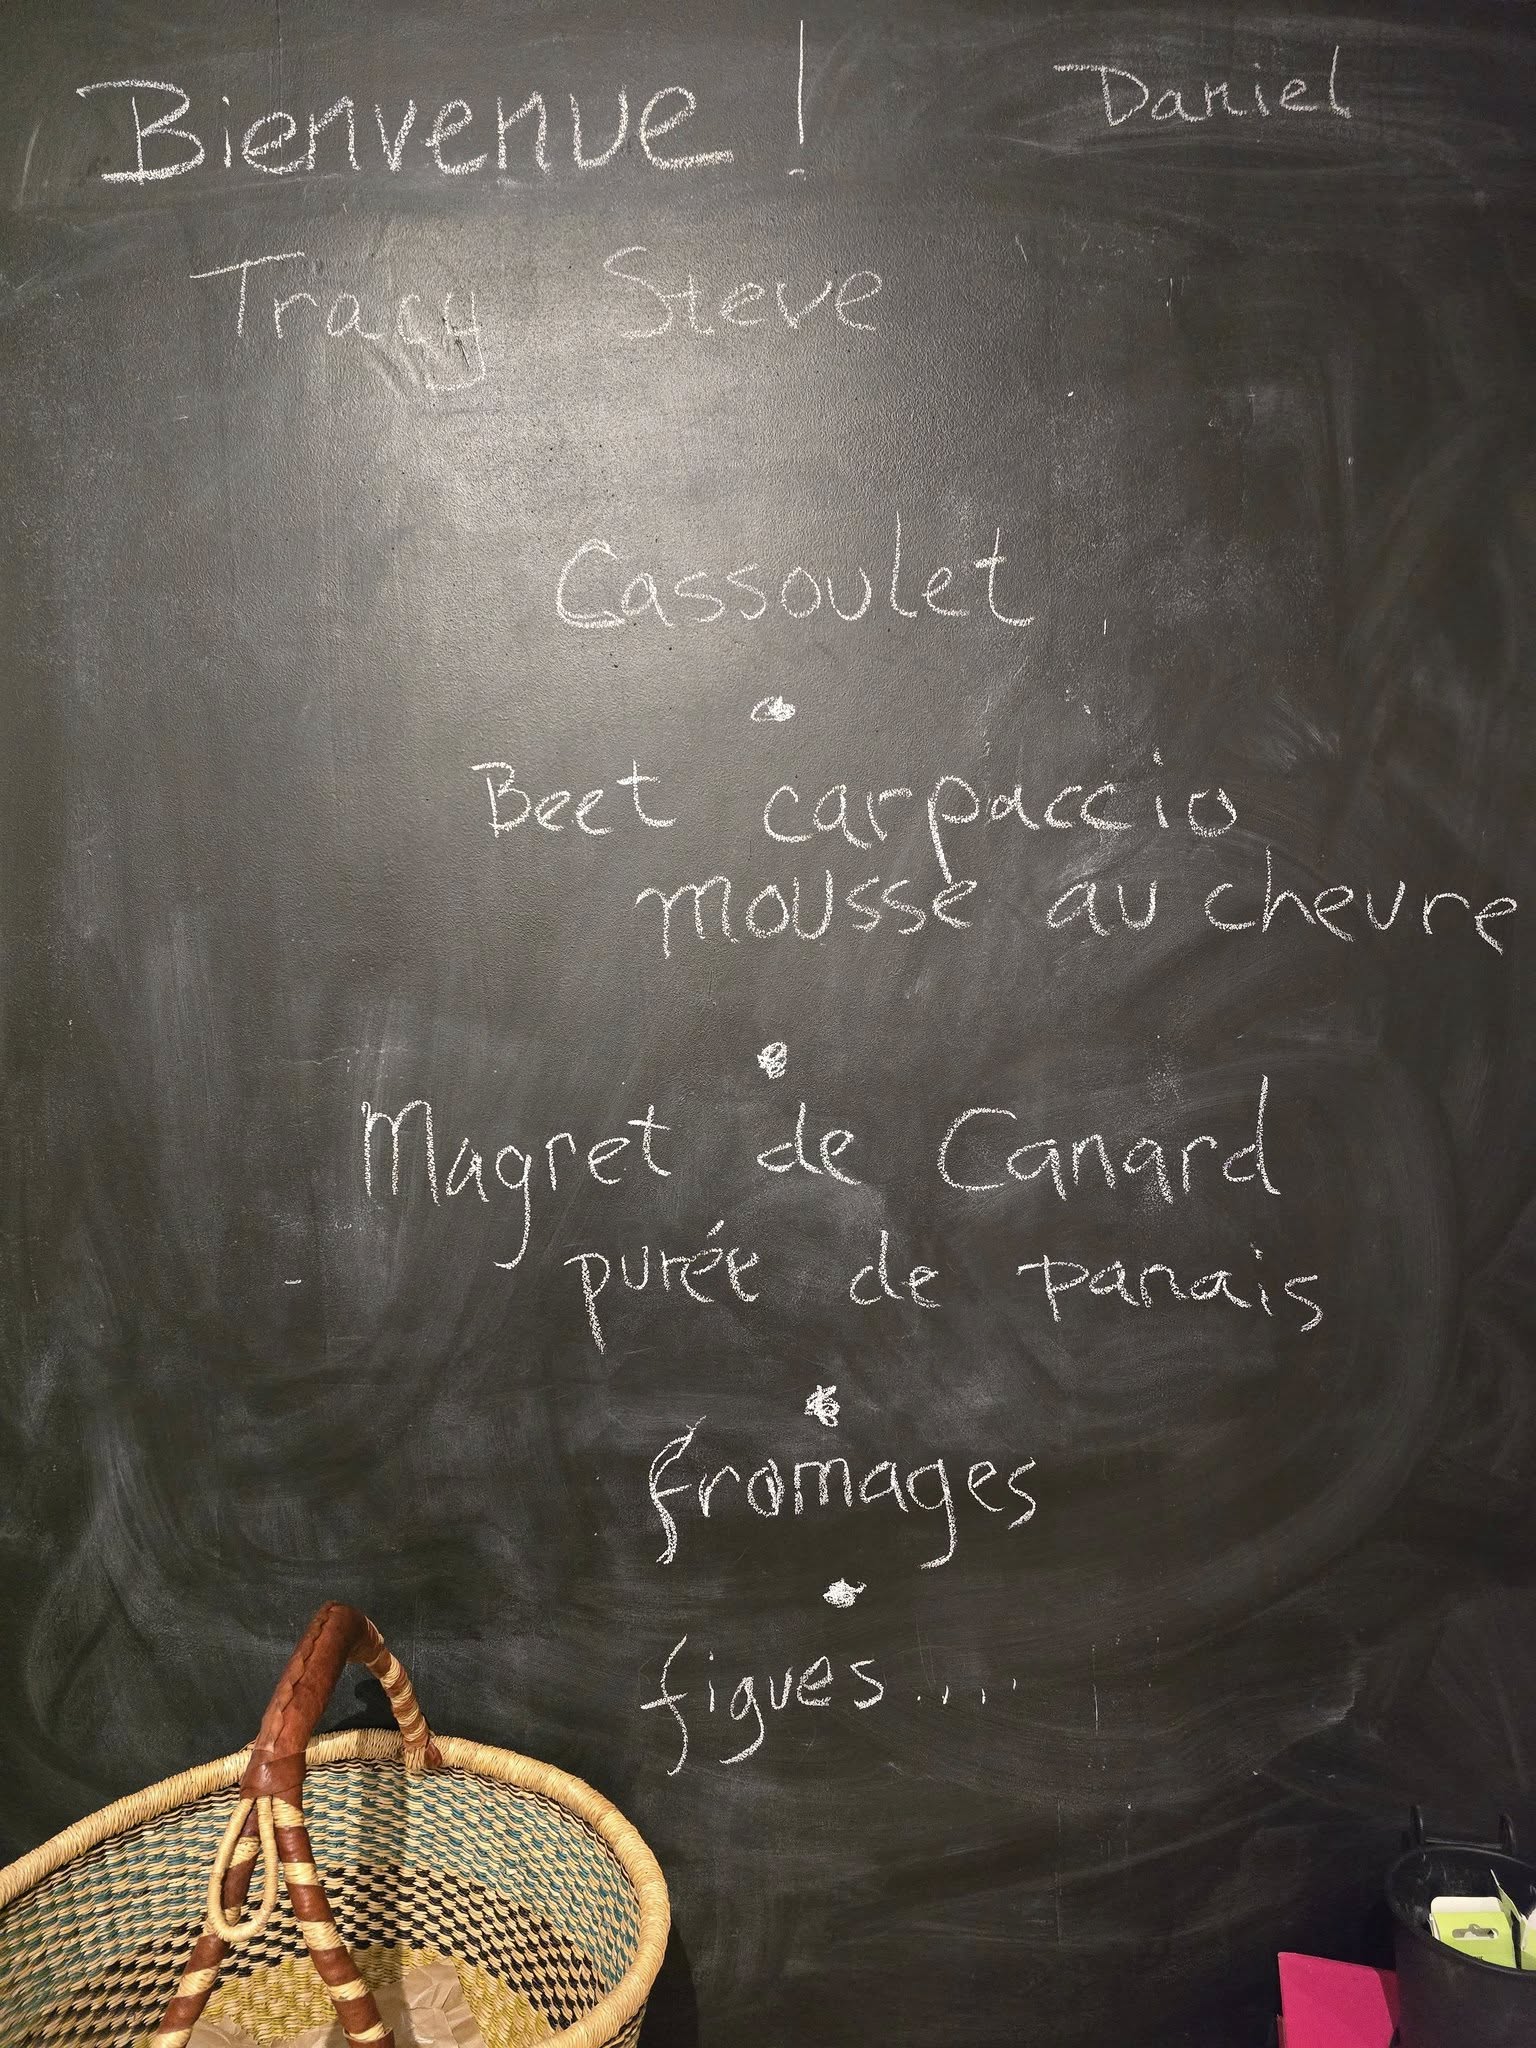 Bienvenue ! Daniel
Tracy Steve
Cassoulet
Beet carpaccio
mousse au chevre
Magret de Canard
purée de panais
fromages
figues....